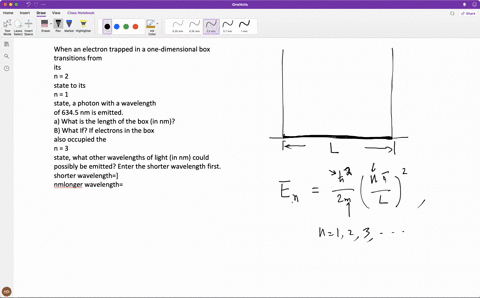 OneNote
Home Insert Draw View Class Notebook
When an electron trapped in a one-dimensional box
transitions from
its
n = 2
state to its
n = 1
state, a photon with a wavelength
of 634.5 nm is emitted.
a) What is the length of the box (in nm)?
B) What If? If electrons in the box
also occupied the
n = 3
state, what other wavelengths of light (in nm) could
possibly be emitted? Enter the shorter wavelength first.
shorter wavelength=]
nmlonger wavelength=
L
E_n = ħ²/2m (nπ/L)² ,
n=1, 2, 3, ...